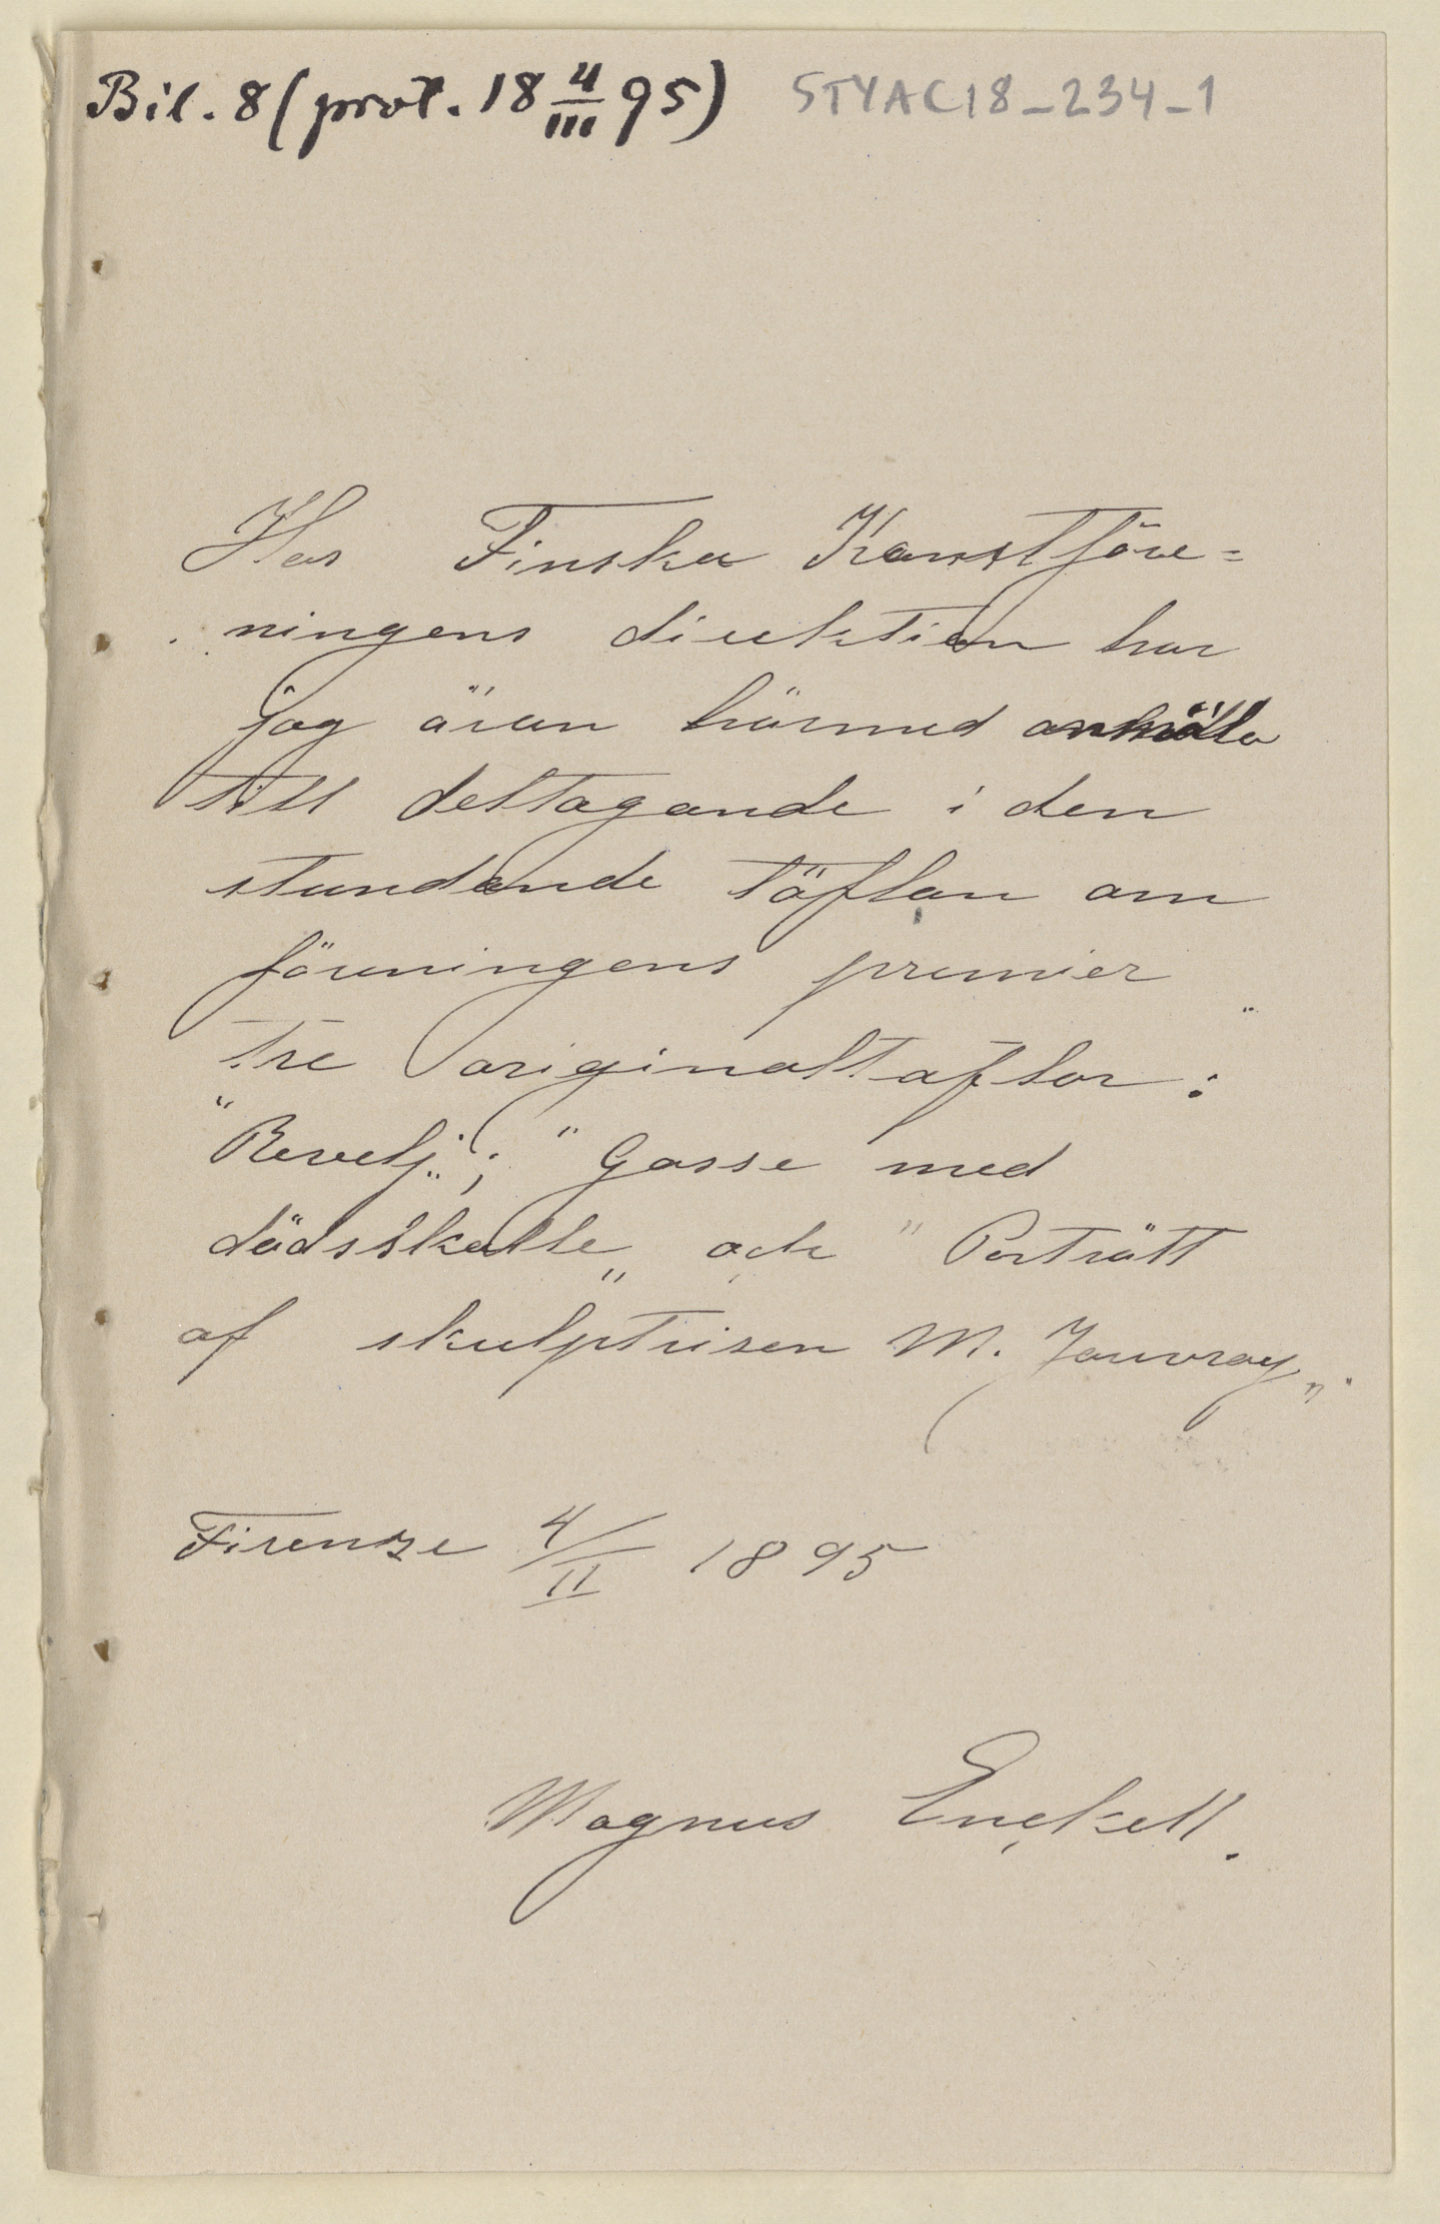 Bil. 8 (prot. 18 4/III 95) STYAC18_234_1
Hos Finska Konstföre=
ningens direktion har
jag äran härmed anhålla
till deltagande i den
stundande täflan om
föreningens premier
tre originaltaflor:
"Revelj"; "Gosse med
dödsskalle" och "Porträtt
af skulptrisen M. Jouvray".
Firenze 4/II 1895
Magnus Enckell.